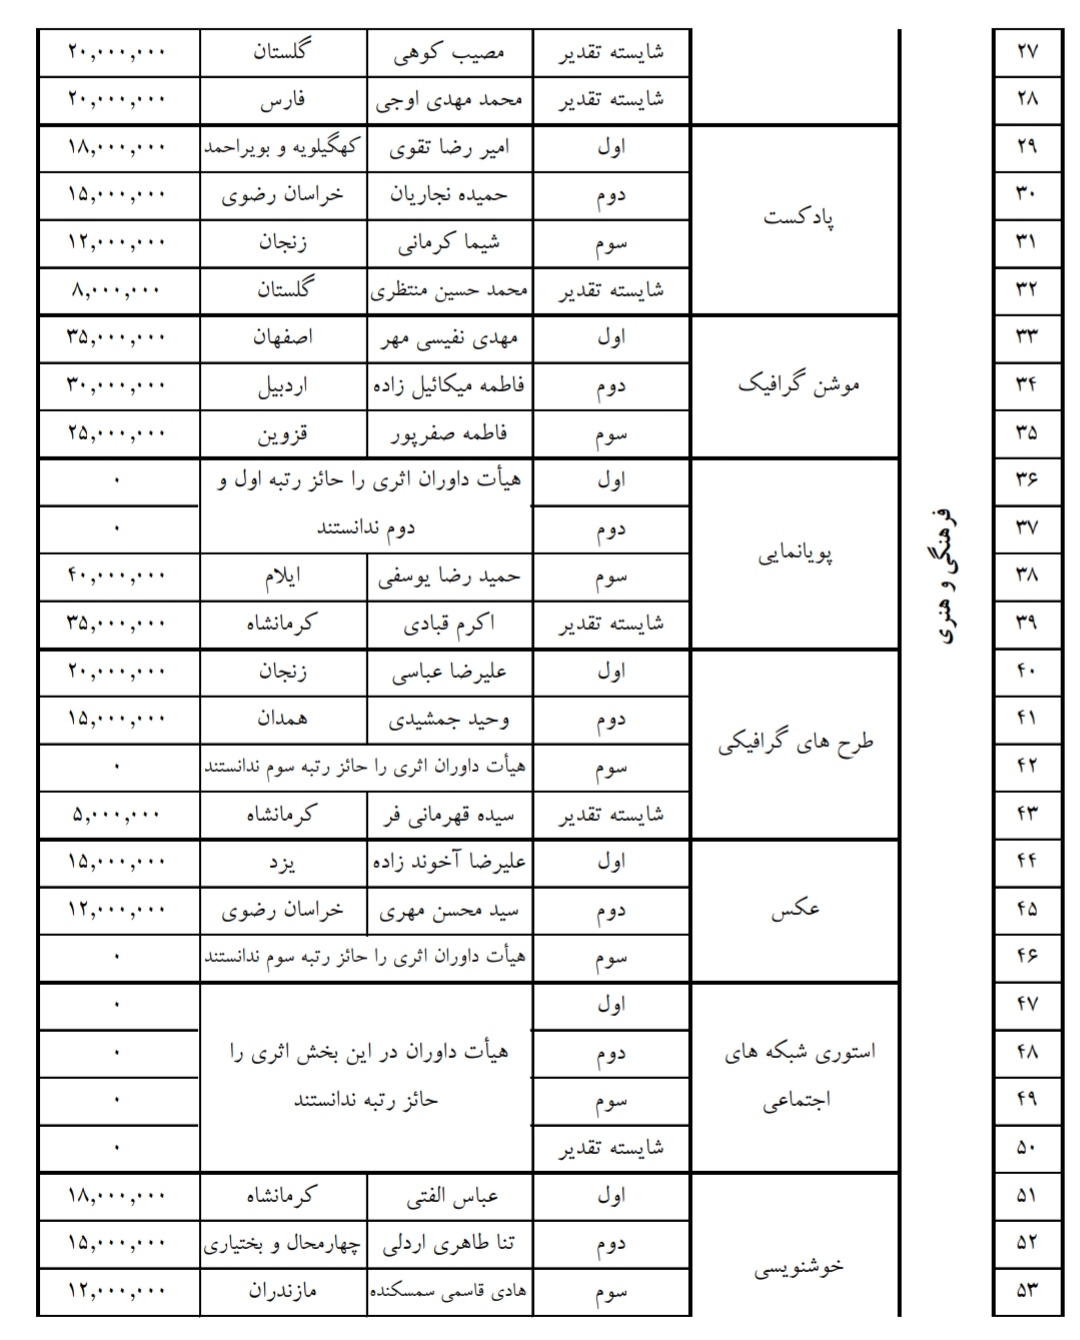 ۲۷ شایسته تقدیر مصیب کوهی گلستان ۲۰,۰۰۰,۰۰۰
۲۸ شایسته تقدیر محمد مهدی اوجی فارس ۲۰,۰۰۰,۰۰۰
فرهنگی و هنری
پادکست
۲۹ اول امیر رضا تقوی کهگیلویه و بویراحمد ۱۸,۰۰۰,۰۰۰
۳۰ دوم حمیده نجاریان خراسان رضوی ۱۵,۰۰۰,۰۰۰
۳۱ سوم شیما کرمانی زنجان ۱۲,۰۰۰,۰۰۰
۳۲ شایسته تقدیر محمد حسین منتظری گلستان ۸,۰۰۰,۰۰۰
موشن گرافیک
۳۳ اول مهدی نفیسی مهر اصفهان ۳۵,۰۰۰,۰۰۰
۳۴ دوم فاطمه میکائیل زاده اردبیل ۳۰,۰۰۰,۰۰۰
۳۵ سوم فاطمه صفرپور قزوین ۲۵,۰۰۰,۰۰۰
پویانمایی
۳۶ اول هیأت داوران اثری را حائز رتبه اول و ۰
۳۷ دوم دوم ندانستند ۰
۳۸ سوم حمید رضا یوسفی ایلام ۴۰,۰۰۰,۰۰۰
۳۹ شایسته تقدیر اکرم قبادی کرمانشاه ۳۵,۰۰۰,۰۰۰
طرح های گرافیکی
۴۰ اول علیرضا عباسی زنجان ۲۰,۰۰۰,۰۰۰
۴۱ دوم وحید جمشیدی همدان ۱۵,۰۰۰,۰۰۰
۴۲ سوم هیأت داوران اثری را حائز رتبه سوم ندانستند ۰
۴۳ شایسته تقدیر سیده قهرمانی فر کرمانشاه ۵,۰۰۰,۰۰۰
عکس
۴۴ اول علیرضا آخوند زاده یزد ۱۵,۰۰۰,۰۰۰
۴۵ دوم سید محسن مهری خراسان رضوی ۱۲,۰۰۰,۰۰۰
۴۶ سوم هیأت داوران اثری را حائز رتبه سوم ندانستند ۰
۴۷ اول ۰
۴۸ استوری شبکه های دوم هیأت داوران در این بخش اثری را ۰
۴۹ اجتماعی سوم حائز رتبه ندانستند ۰
۵۰ شایسته تقدیر ۰
خوشنویسی
۵۱ اول عباس الفتی کرمانشاه ۱۸,۰۰۰,۰۰۰
۵۲ دوم تنا طاهری اردلی چهارمحال و بختیاری ۱۵,۰۰۰,۰۰۰
۵۳ سوم هادی قاسمی سمسکنده مازندران ۱۲,۰۰۰,۰۰۰